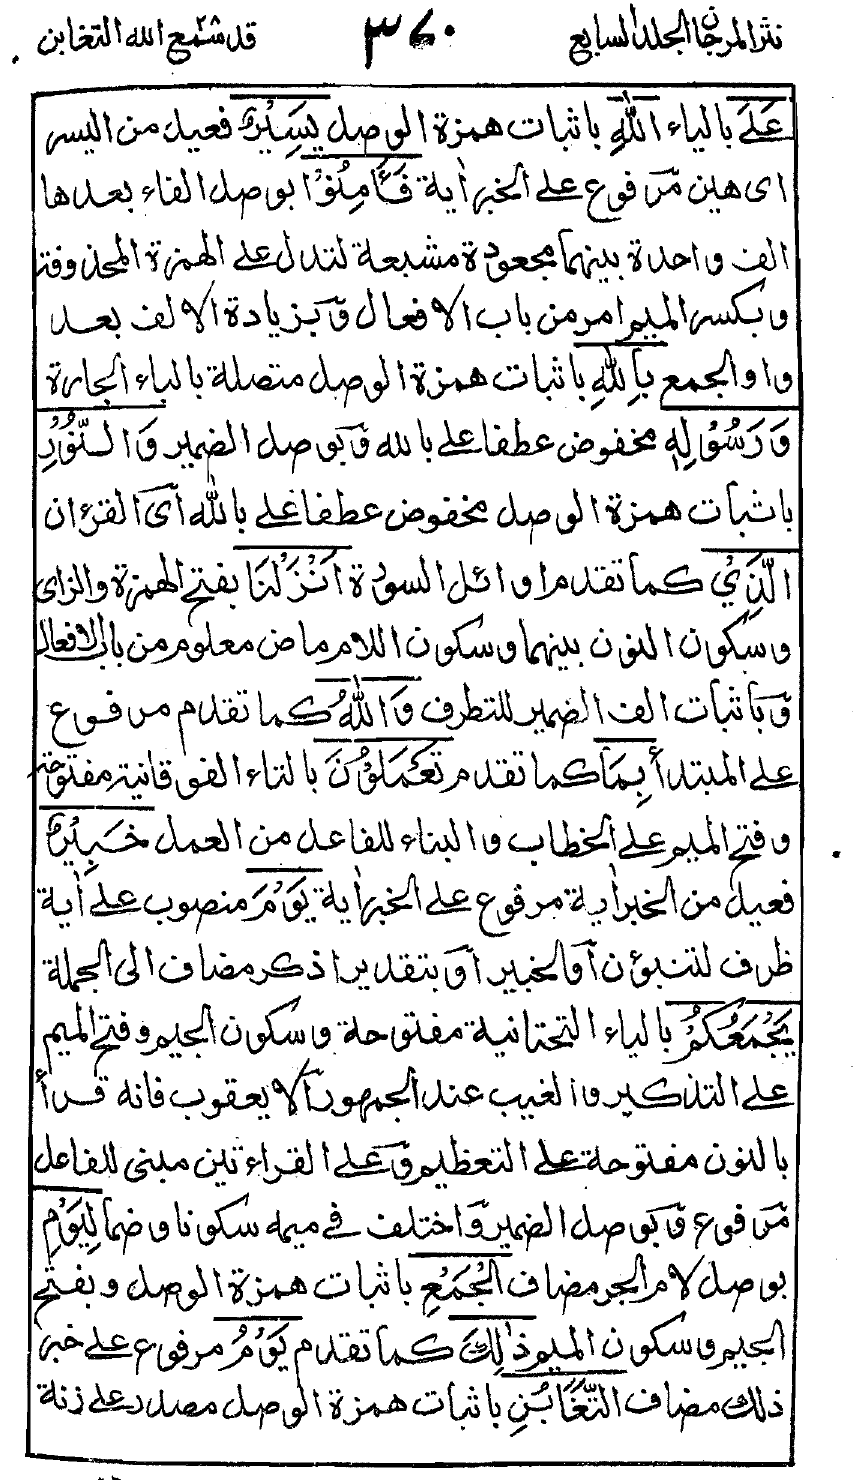 نثر المرجان الجلد السابع ٣٧٠ قد سمع الله ٢٨ التغابن
عَلَى بالياء اللّٰهِ باثبات همزة الوصل يَسِيْرٌ فعيل من اليسر
اى هين مرفوع على الخبر اٰية فَاٰمِنُوْا بوصل الفاء بعدها
الف واحدة بينهما مجعودة مشبعة لتدل على الهمزة المحذوفة
وبكسر الميم امر من باب الافعال وبزيادة الالف بعد
واو الجمع بِاللّٰهِ باثبات همزة الوصل متصلة بالباء الجارة
وَرَسُوْلِهٖ مخفوض عطفا على بالله وبوصل الضمير وَالنُّوْرِ
باثبات همزة الوصل مخفوض عطفا على بالله اى القرءان
الَّذِيْ كما تقدم اوائل السورة اَنْزَلْنَا بفتح الهمزة والزاى
وسكون النون بينهما وسكون اللام ماض معلوم من باب الافعال
وباثبات الف الضمير للتطرف وَاللّٰهُ كما تقدم مرفوع
على المبتدأ بِمَا كما تقدم تَعْمَلُوْنَ بالتاء الفوقانية مفتوحة
وفتح الميم على الخطاب والبناء للفاعل من العمل خَبِيْرٌ
فعيل من الخبر اٰية مرفوع على الخبر اٰية يَوْمَ منصوب على اٰية
ظرف لتنبؤن او الخبير او بتقدير اذكر مضاف الى الجملة
يَجْمَعُكُمْ بالياء التحتانية مفتوحة وسكون الجيم وفتح الميم
على التذكير والغيب عند الجمهور الا يعقوب فانه قرأ
بالنون مفتوحة على التعظيم وعلى القراءتين مبنى للفاعل
مرفوع وبوصل الضمير واختلف في ميمه سكونا وضما لِيَوْمِ
بوصل لام الجر مضاف الْجَمْعِ باثبات همزة الوصل وبفتح
الجيم وسكون الميم ذٰلِكَ كما تقدم يَوْمُ مرفوع على خبر
ذلك مضاف التَّغَابُنِ باثبات همزة الوصل مصدر على زنة